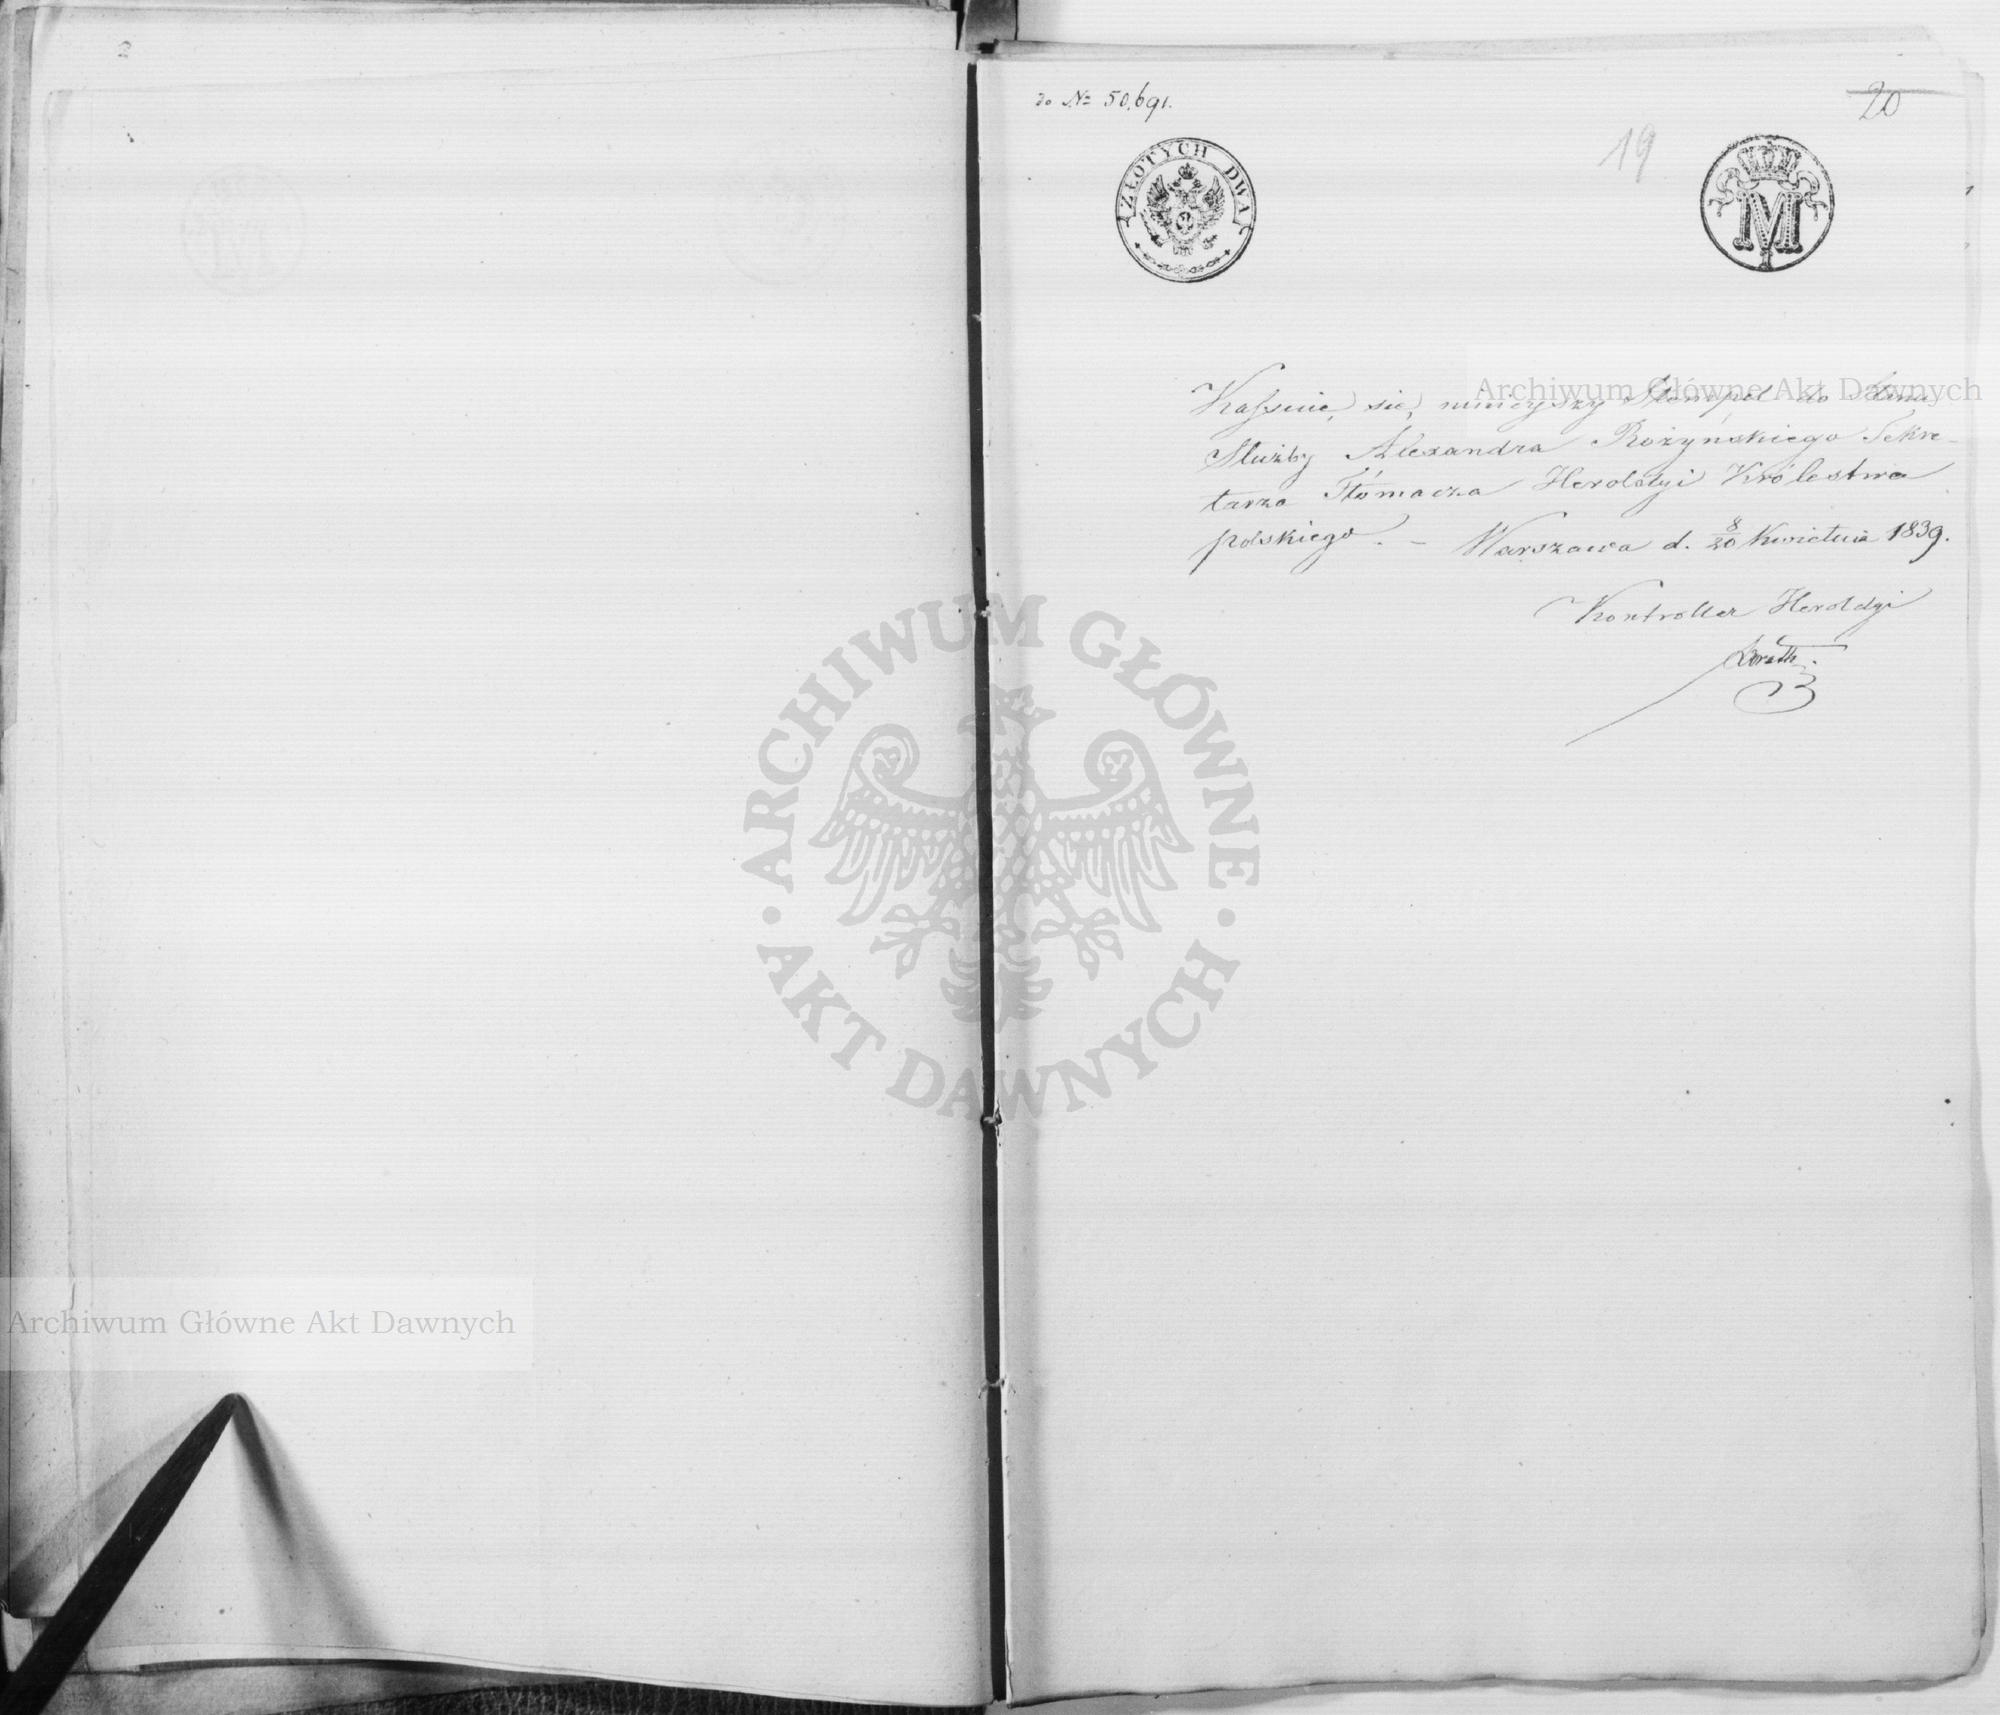 2
do № 50,691.
20
19
ZŁOTYCH DWA
M
Kassuie się ninieyszy Stempel do Stanu
Służby Alexandra Rożyńskiego Sekre-
tarza Tłómacza Heroldyi Królestwa
polskiego. – Warszawa d. 8/20 Kwietnia 1839.
Kontroller Heroldyi
Archiwum Główne Akt Dawnych
ARCHIWUM GŁÓWNE
AKT DAWNYCH
Archiwum Główne Akt Dawnych